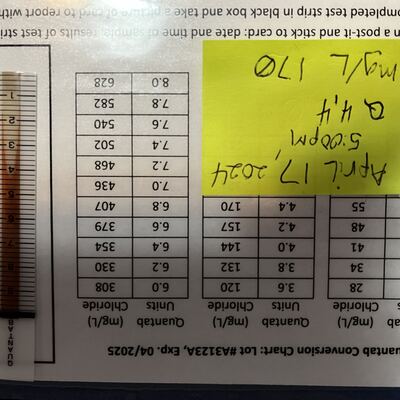 uantab Conversion Chart: Lot #A3123A, Exp. 04/2025
(mg/L) Quantab (mg/L) Quantab (mg/L)
Chloride Units Chloride Units Chloride
28 3.6 120 6.0 308
34 3.8 132 6.2 330
41 4.0 144 6.4 354
48 4.2 157 6.6 379
55 4.4 170 6.8 407
7.0 436
7.2 468
7.4 502
7.6 540
7.8 582
8.0 628
April 17, 2024
5:00pm
Q 4,4
mg/L 170
QUANTAB
9
8
7
6
5
4
3
2
1
n a post-it and stick to card: date and time of sample, results of test stri
ompleted test strip in black box and take a picture of card to report with